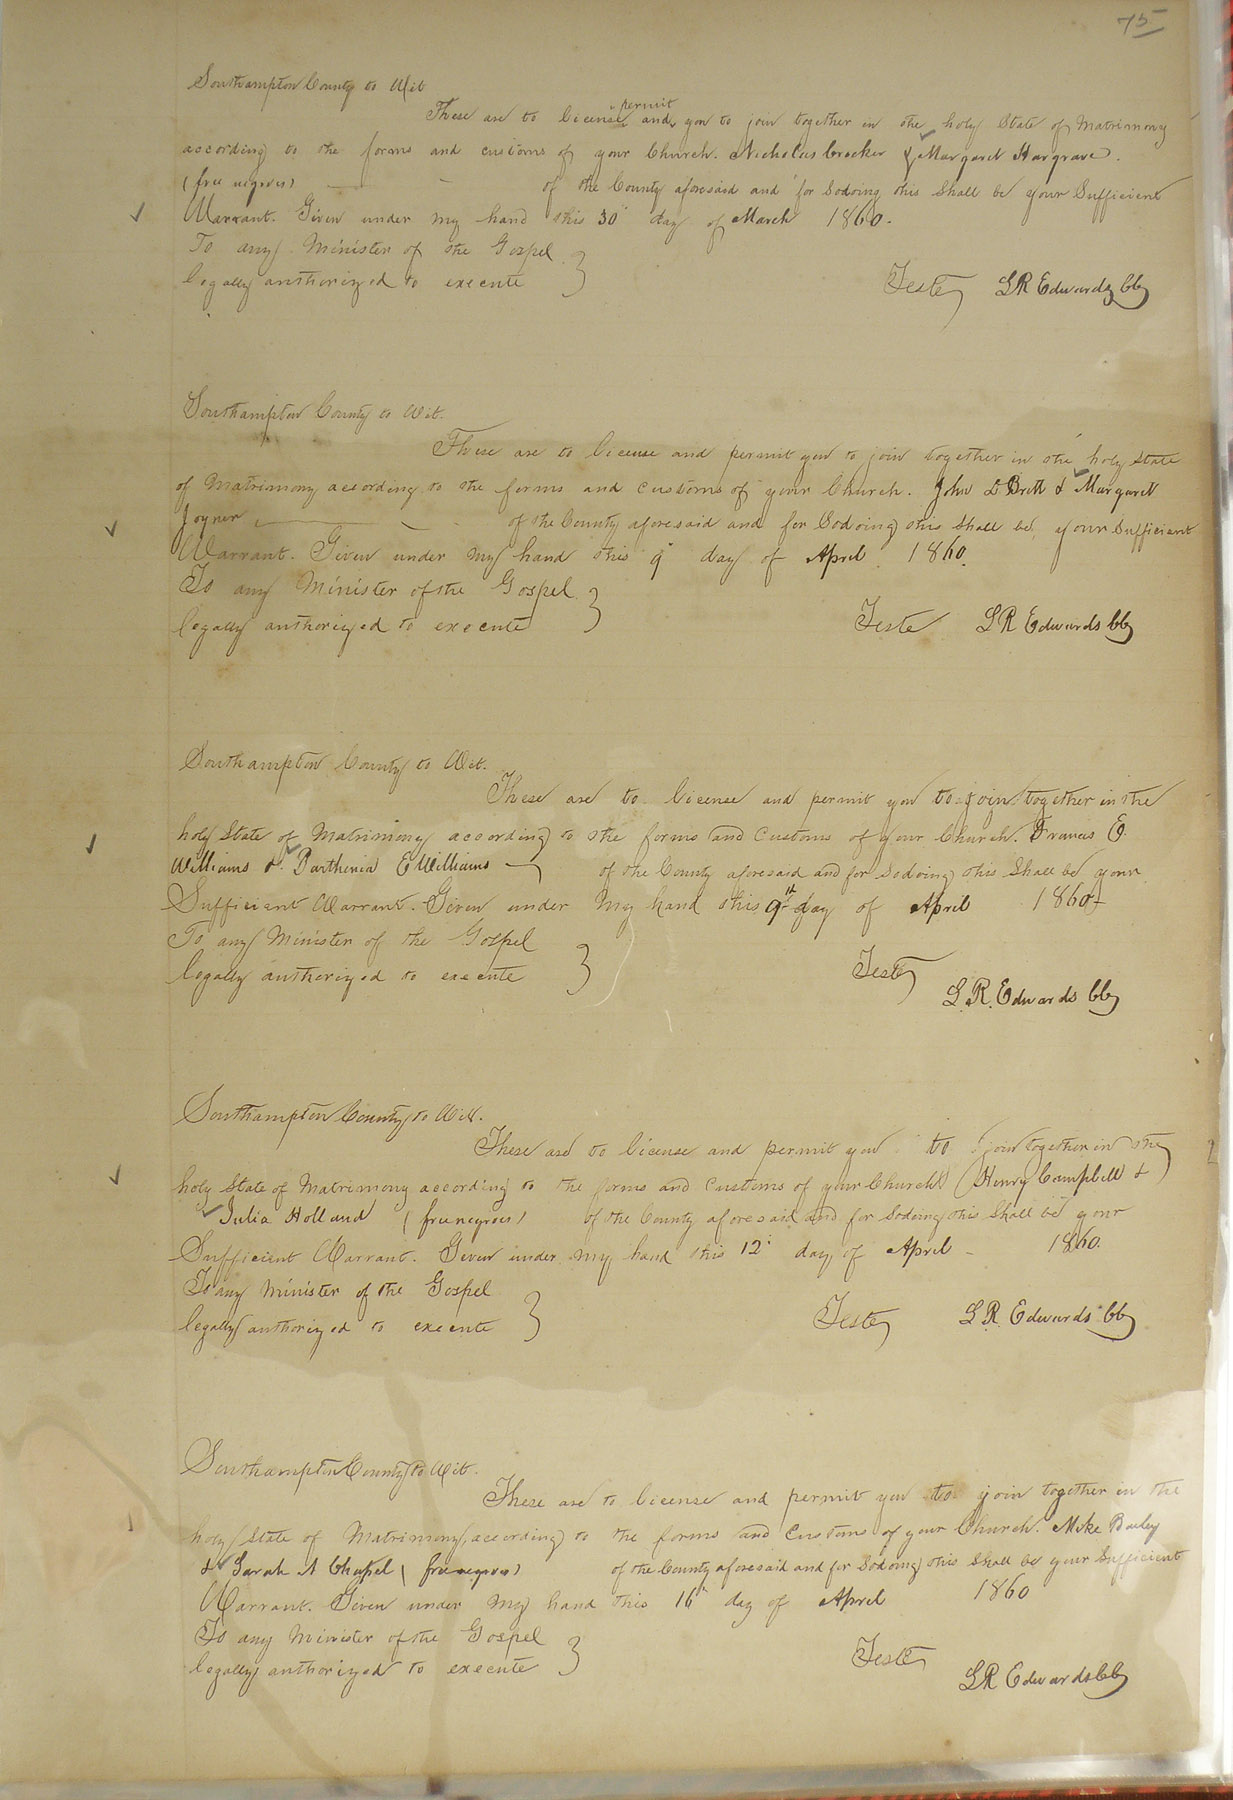 75
Southampton County to Wit
permit
These are to license and you to join together in the holy State of Matrimony
according to the forms and customs of your Church. Nicholas Crocker & Margaret Hargrave.
(free negroes) of the County aforesaid and for Sodoing this Shall be your Sufficient
Warrant. Given under my hand this 30 day of March 1860.
To any Minister of the Gospel
legally authorized to execute }
Teste LR Edwards CC
Southampton County to Wit.
These are to license and permit you to join together in the holy State
of Matrimony according to the forms and customs of your Church. John Britt & Margaret
Joyner of the County aforesaid and for Sodoing this Shall be your Sufficient
Warrant. Given under my hand this 9 day of April 1860.
To any Minister of the Gospel }
legally authorized to execute
Teste LR Edwards CC
Southampton County to Wit.
These are to license and permit you to join together in the
holy State of Matrimony according to the forms and Customs of your Church. Francis E
Williams & Parthenia E Williams of the County aforesaid and for Sodoing this Shall be your
Sufficient Warrant. Given under my hand this 9th day of April 1860
To any Minister of the Gospel
legally authorized to execute }
Teste
L.R. Edwards CC
Southampton County to Wit.
These are to license and permit you to join together in the
holy State of Matrimony according to the forms and Customs of your Church (Henry Campbell &
Julia Holland (free negroes) of the County aforesaid and for Sodoing this Shall be your
Sufficient Warrant. Given under my hand this 12 day of April 1860.
To any Minister of the Gospel
legally authorized to execute }
Teste LR Edwards CC
Southampton County to Wit.
These are to license and permit you to join together in the
holy State of Matrimony, according to the forms and Customs of your Church. Mike Bailey
& Sarah A Chapel (free negroes) of the County aforesaid and for Sodoing this Shall be your Sufficient
Warrant. Given under my hand this 16 day of April 1860
To any Minister of the Gospel
legally authorized to execute }
Teste
LR Edwards CC